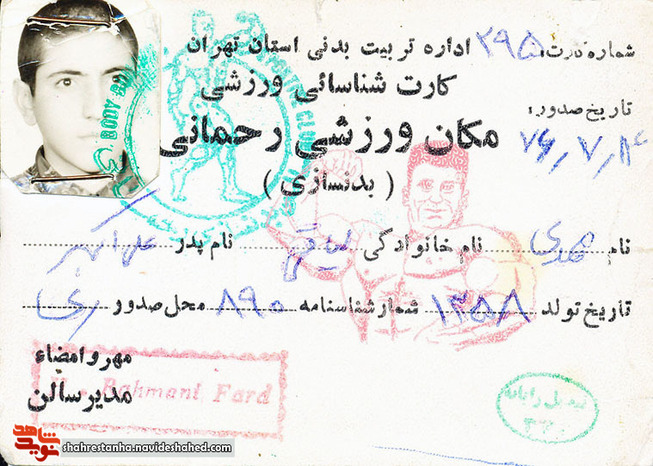 شماره کارت: ۲۹۵ اداره تربیت بدنی استان تهران
کارت شناسائی ورزشی
تاریخ صدور: ۷۶/۷/۱۴
مکان ورزشی رحمانی
( بدنسازی )
نام مهدی نام خانوادگی لیاقی نام پدر علی اکبر
تاریخ تولد ۱۳۵۸ شمار شناسنامه ۸۹۰ محل صدور ری
مهر و امضاء
مدیر سالن
Rahmani Fard
BODY
CLUB
شاهد
نوید
shahrestanha.navideshahed.com